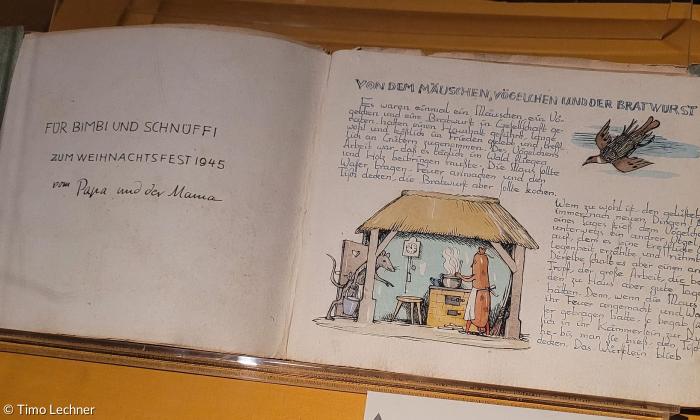 FÜR BIMBI UND SCHNUFFI
ZUM WEIHNACHTSFEST 1945
vom Papa und der Mama
VON DEM MÄUSCHEN, VÖGELCHEN UND DER BRATWURST
Es waren einmal ein Mäuschen, ein Vö-
gelchen und eine Bratwurst in Gesellschaft ge-
raten, hatten einen Haushalt geführt, lange
wohl und köstlich im Frieden gelebt und treff-
lich an Gütern zugenommen. Des Vögelchens
Arbeit war, daß es täglich im Wald fliegen
und Holz beibringen mußte. Die Maus sollte
Wasser tragen, Feuer anmachen und den
Tisch decken, die Bratwurst aber sollte kochen.
Wem zu wohl ist, den gelüstet
immer nach neuen Dingen!
eines Tages stieß dem Vögelchen
unterwegs ein anderer Vogel
auf, dem es seine treffliche
legenheit erzählte und
Derselbe schalt es aber einen
tropf, der große Arbeit, die
zu Haus aber gute Tage
hätten. Denn, wenn die Maus
ihr Feuer angemacht und Was-
ser getragen hatte, so begab
sich in ihr Kämmerlein zur
he, bis man sie hieß, den Tisch
decken. Das Würstlein blieb
© Timo Lechner